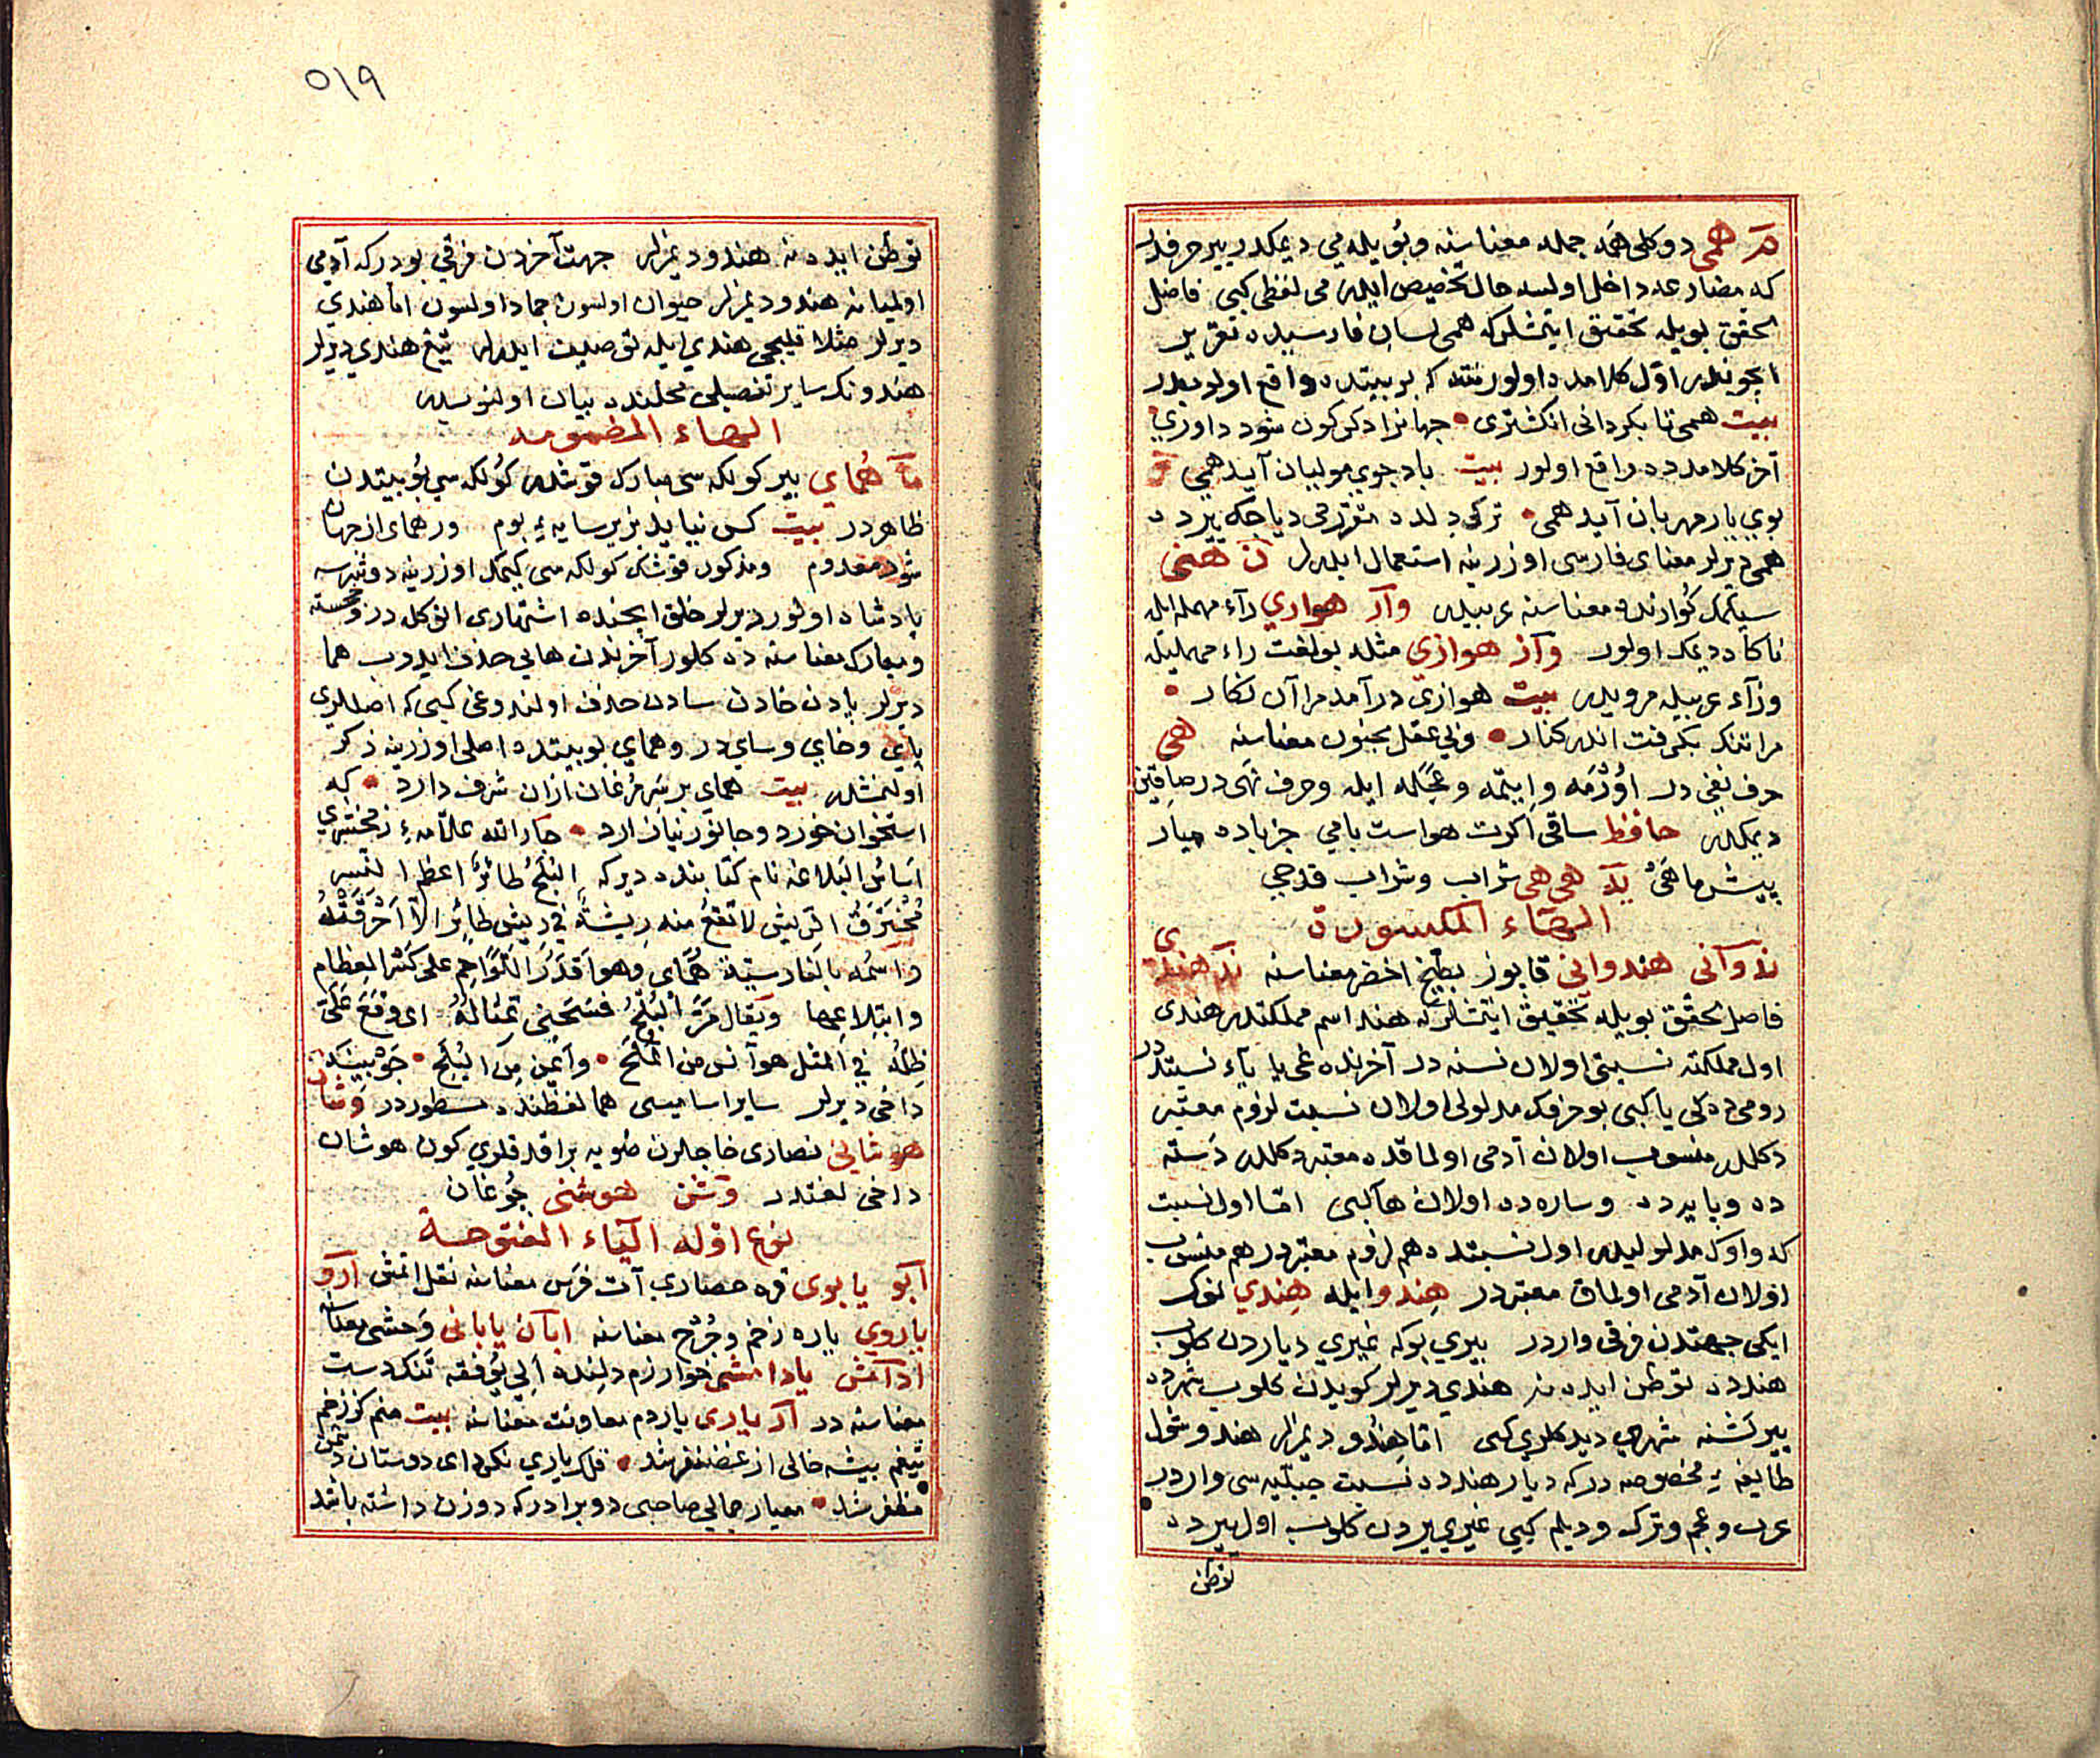 مَ همی دوکلی همه جمله معناسنه وبویله می دیمکدر بیر حرفدر
که مضارعه داخل اولسه حال تخصیص ایلر می لفظی کبی فاضل
محقق بویله تحقیق ایتمشلر که همی لسان فارسیده تقریر
ایچوندر اول کلامده اولور نته که بو بیتده واقع اولوبدر
بیت همی تا بکردانی انکشتری • جهانرا دکرکون شود داوری
آخر کلامده ده واقع اولور بیت باد جوی مولیان آید همی
بوی یار مهربان آید همی • ترکی دلده دیاجک یرده
همی دیرلر معنای فارسی اوزرینه استعمال ایدرلر نَ هنی
سیکمک کوارنده معناسنه عربیدر وآرَ هواری رآء مهمله ایله
ناکاه دیمک اولور وآزَ هوازی مثله بو لغت راء مهملیله
وزآء عربیله مرویدر بیت هوازی درآمد مرا آن نکار •
مرا تنک بکرفت اندر کنار • وبی عقل مجنون معناسنه هی
حرف نفی در اوزمه وایتمه وعجله ایله وحرف نهی در صاقین
دیمکدر حافظ ساقی اکرت هواست بامی جز باده میار
پیش ما هی یدَ هی هی شراب وشراب قدحی
الهاء المکسورة
ندوآنی هندوانی قاپوز بطیخ اخضر معناسنه ندَ هندی
فاضل محقق بویله تحقیق ایتمشلر که هند اسم مملکتدر هندی
اول مملکته نسبتی اولان نسنه در آخرنده غی یا یآء نسبتدر
رومی ده کی یا کبی بو حرفک مدلولی اولان نسبت لزوم معتبر
دکلدر منسوب اولان آدمی اولماقده معتبر دکلدر دسته
ده وپایه ده وساره ده اولان ها کبی اما اول نسبت
که واوک مدلولیدر اول نسبتده هم لزوم معتبردر هم منسوب
اولان آدمی اولماق معتبردر هندو ایله هندی نوک
ایکی جهتدن فرقی واردر بیری بوکه غیری دیاردن کلوب
هندده توطن ایدنه هندی دیرلر کویدن کلوب شهرده
بیر کشنه شهری دیدکلری کبی اما هندو دیمزلر هندو شول
طایفهٔ مخصوصه در که دیار هندده نسبت جبلیه سی واردر
عرب وعجم وترک ودیلم کبی غیری یردن کلوب اول یرده
توطن
٥١٩
توطن ایدنه هندو دیمزلر جهت آخردن فرقی بودر که آدمی
اولمیانه هندو دیمزلر حیوان اولسون جماد اولسون اما هندی
دیرلر مثلا قلیجی هندی ایله توصیف ایدرلر تیغ هندی دیرلر
هندونک سایر تفصیلی محلنده بیان اولنوبدر
الهاء المضمومه
مآ همای بیر کولکه سی مبارک قوشدر کولکه سی بو بیتدن
ظاهردر بیت کس نیاید بزیر سایهٔ بوم ور همای از جهان
شود معدوم ومذکور قوشک کولکه سی کیمک اوزرینه دوشرسه
پادشاه اولور دیرلر خلق ایچنده اشتهاری انوکلدر وخجسته
ومبارک معناسنه ده کلور آخرندن هایی حذف ایدوب هما
دیرلر پادن خادن سادن حذف اولندوغی کبی که اصللری
پای وخای وسای در وهمای بو بیتده اصلی اوزرینه ذکر
اولنمشدر بیت همای بر سر مرغان ازان شرف دارد • که
استخوان خورد وجانور نیازارد • جار الله علامهٔ زمخشری
اساس البلاغه نام کتابنده دیر که البلح طائر اعظم النسر
محترق الریش لا تقع منه ریشة فی ریش طایر الا احرقته
واسمه بالفارسیة همای وهو اقدر اللواحم علی کسر العظام
وابتلاعها ویقال مر البلح فسخنی تمثاله ای وقع علی
ظله فی المثل هو آنس من الملح • وایمن من البلح •
داخی دیرلر سایر اسامیسی هما لفظنده مسطوردر وشان
هوشانی نصاری خاجلرن صویه براقدقلری کون هوشان
داخی لغتدر وشن هوشنی چوغان
نوع اوله الیآء المفتوحة
آبو یابوی قره حصاری آت فرس معناسنه نقل اتمش آرو
یاروی یاره زخم وجرح معناسنه ابآن یابانی وحشی معناسنه
ادامش یادامشی خوارزم دلنده الی یوفقه تنکدست
معناسنه در آرَ یاری یاردم معاونت معناسنه بیت منم کز زخم
تیغم بیشه خالی از غضنفر شد • فلک یاری نکرد ای دوستان دشمن
مظفر شد • معیار جمالی صاحبی دو برادر که دو زن داشته باشد